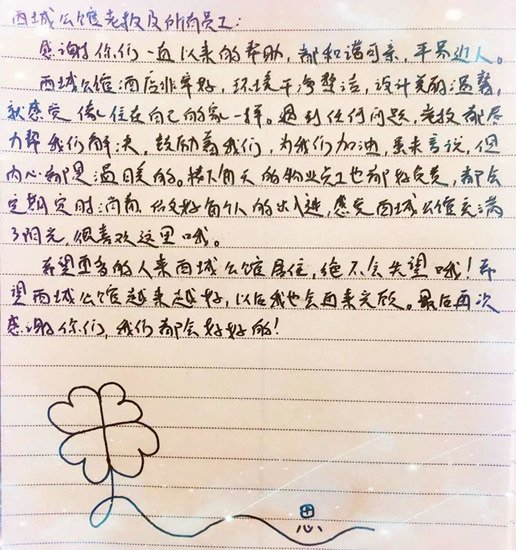 西城公馆老板及所有员工:
感谢你们一直以来的帮助,都和谐可亲,平易近人。
西城公馆酒店非常好,环境干净整洁,设计美丽温馨,
就感觉像住在自己的家一样。遇到任何问题,老板都尽
力帮我们解决,鼓励着我们,为我们加油,累来言说,但
内心都是温暖的。楼下每天的物业员工也都好负责,都会
定期定时消毒,做好每个人的出入进,感觉西城公馆充满
了阳光,很喜欢这里哦。
希望更多的人来西城公馆居住,绝不会失望哦!希
望西城公馆越来越好,以后我也会再来光顾。最后再次
感谢你们,我们都会好好的!
恩